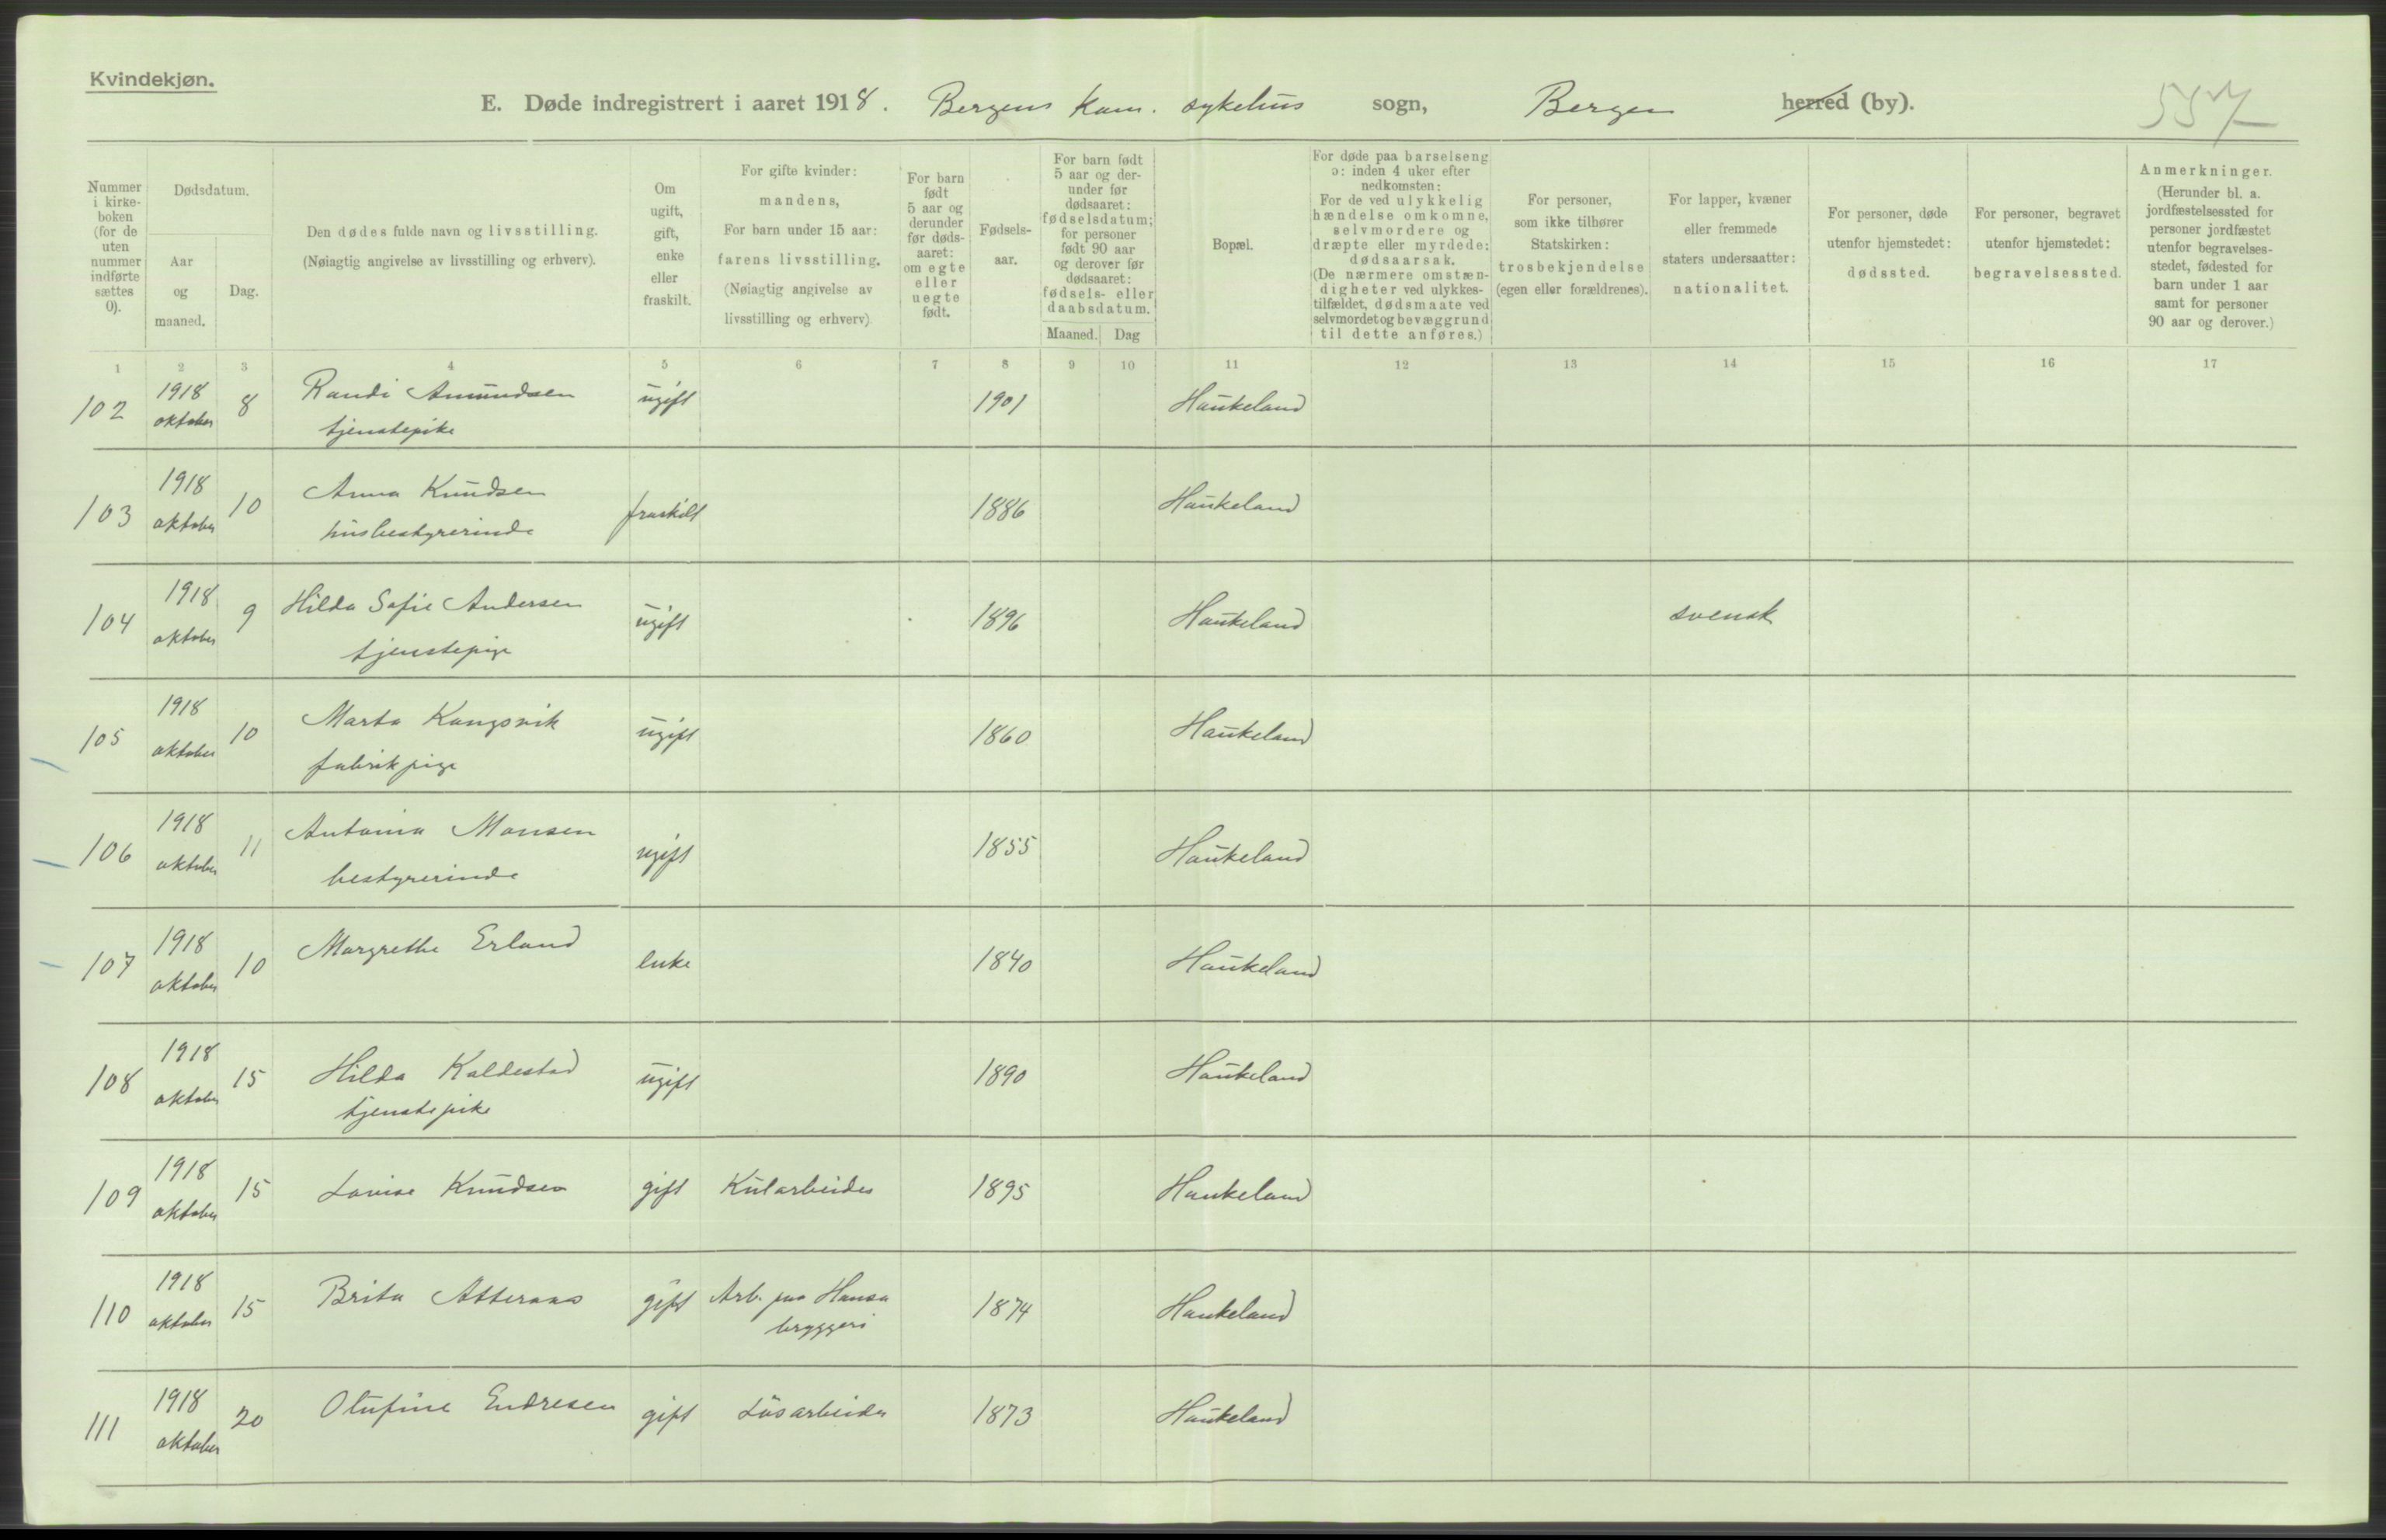 Kvindekjøn.
E. Døde indregistrert i aaret 1918. Bergens kom. sykehus sogn, Bergen herred (by). 557
Nummer i kirke-boken (for de uten nummer indførte sættes 0).
Dødsdatum.
Aar og maaned.
Dag.
Den dødes fulde navn og livsstilling.
(Nøiagtig angivelse av livsstilling og erhverv).
Om ugift, gift, enke eller fraskilt.
For gifte kvinder:
mandens,
For barn under 15 aar:
farens livsstilling.
(Nøiagtig angivelse av
livsstilling og erhverv)
For barn født 5 aar og derunder før døds-aaret: om egte eller uegte født.
Fødsels-aar.
For barn født 5 aar og der-under før dødsaaret: fødselsdatum; for personer født 90 aar og derover før dødsaaret: fødsels- eller daabsdatum.
Maaned. Dag
Bopæl.
For døde paa barselseng ɔ: inden 4 uker efter nedkomsten: For de ved ulykkelig hændelse omkomne, selvmordere og dræpte eller myrdede: dødsaarsak. (De nærmere omstæn-digheter ved ulykkes-tilfældet, dødsmaate ved selvmordet og bevæggrund til dette anføres.)
For personer, som ikke tilhører Statskirken: trosbekjendelse (egen eller forældrenes).
For lapper, kvæner eller fremmede staters undersaatter: nationalitet.
For personer, døde utenfor hjemstedet: dødssted.
For personer, begravet utenfor hjemstedet: begravelsessted.
Anmerkninger. (Herunder bl. a. jordfæstelsessted for personer jordfæstet utenfor begravelses-stedet, fødested for barn under 1 aar samt for personer 90 aar og derover.)
1 2 3 4 5 6 7 8 9 10 11 12 13 14 15 16 17
102 1918 oktober 8 Randi Amundsen ugift 1901 Haukeland
tjenstepike
103 1918 oktober 10 Anna Knudsen fraskilt 1886 Haukeland
husbestyrerinde
104 1918 oktober 9 Hilda Sofie Andersen ugift 1896 Haukeland svensk
tjenstepige
105 1918 oktober 10 Marta Kongsvik ugift 1860 Haukeland
fabrikpige
106 1918 oktober 11 Antonia Monsen ugift 1855 Haukeland
bestyrerinde
107 1918 oktober 10 Margrethe Erland enke 1840 Haukeland
108 1918 oktober 15 Hilda Kaldestad ugift 1890 Haukeland
tjenstepike
109 1918 oktober 15 Lovise Knudsen gift Kularbeider 1895 Haukeland
110 1918 oktober 15 Brita Atteraas gift Arb. paa Hansa 1874 Haukeland
bryggeri
111 1918 oktober 20 Olufine Endresen gift Løsarbeider 1873 Haukeland